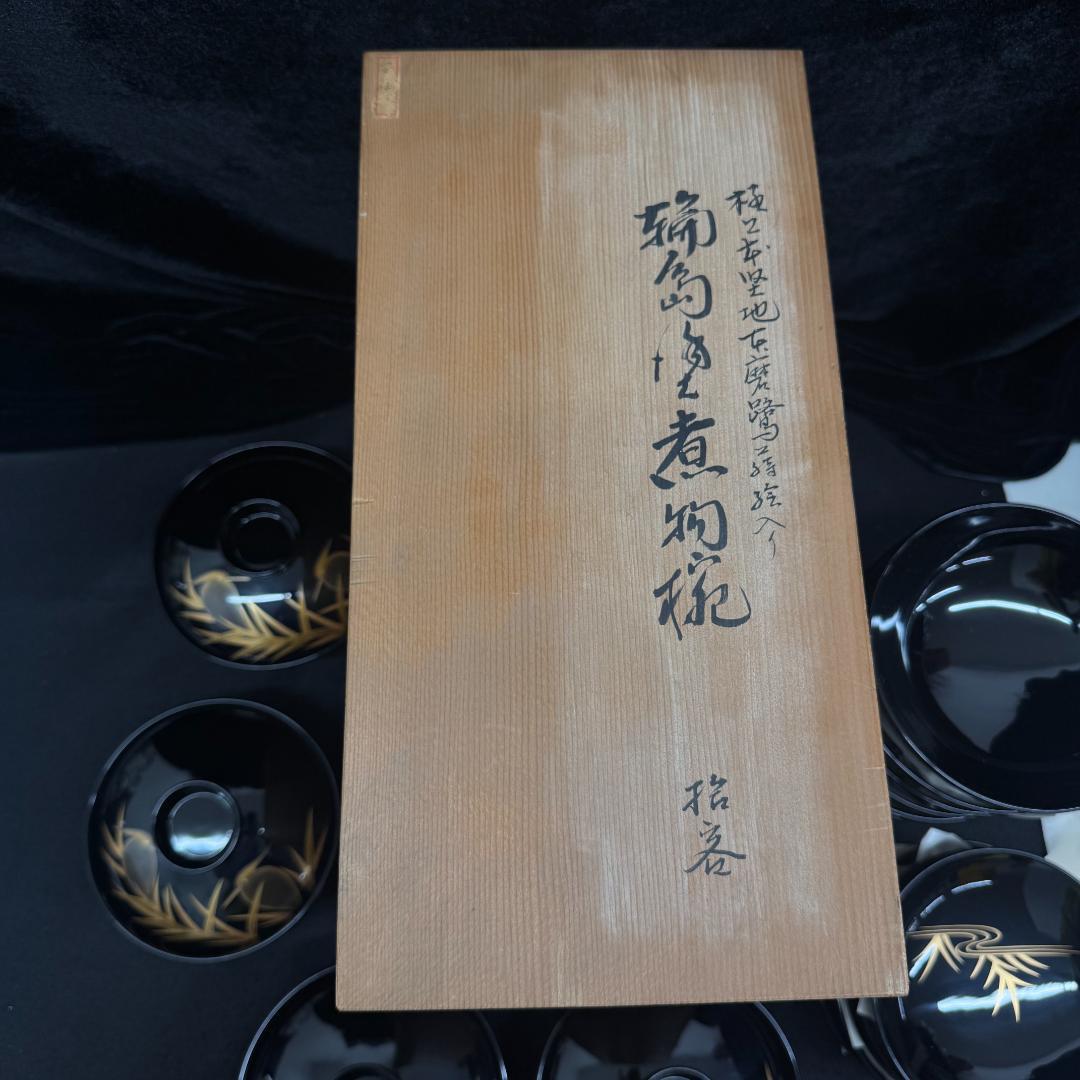 極上本堅地本磨鷺蒔絵入り
輪島塗煮物椀
拾客